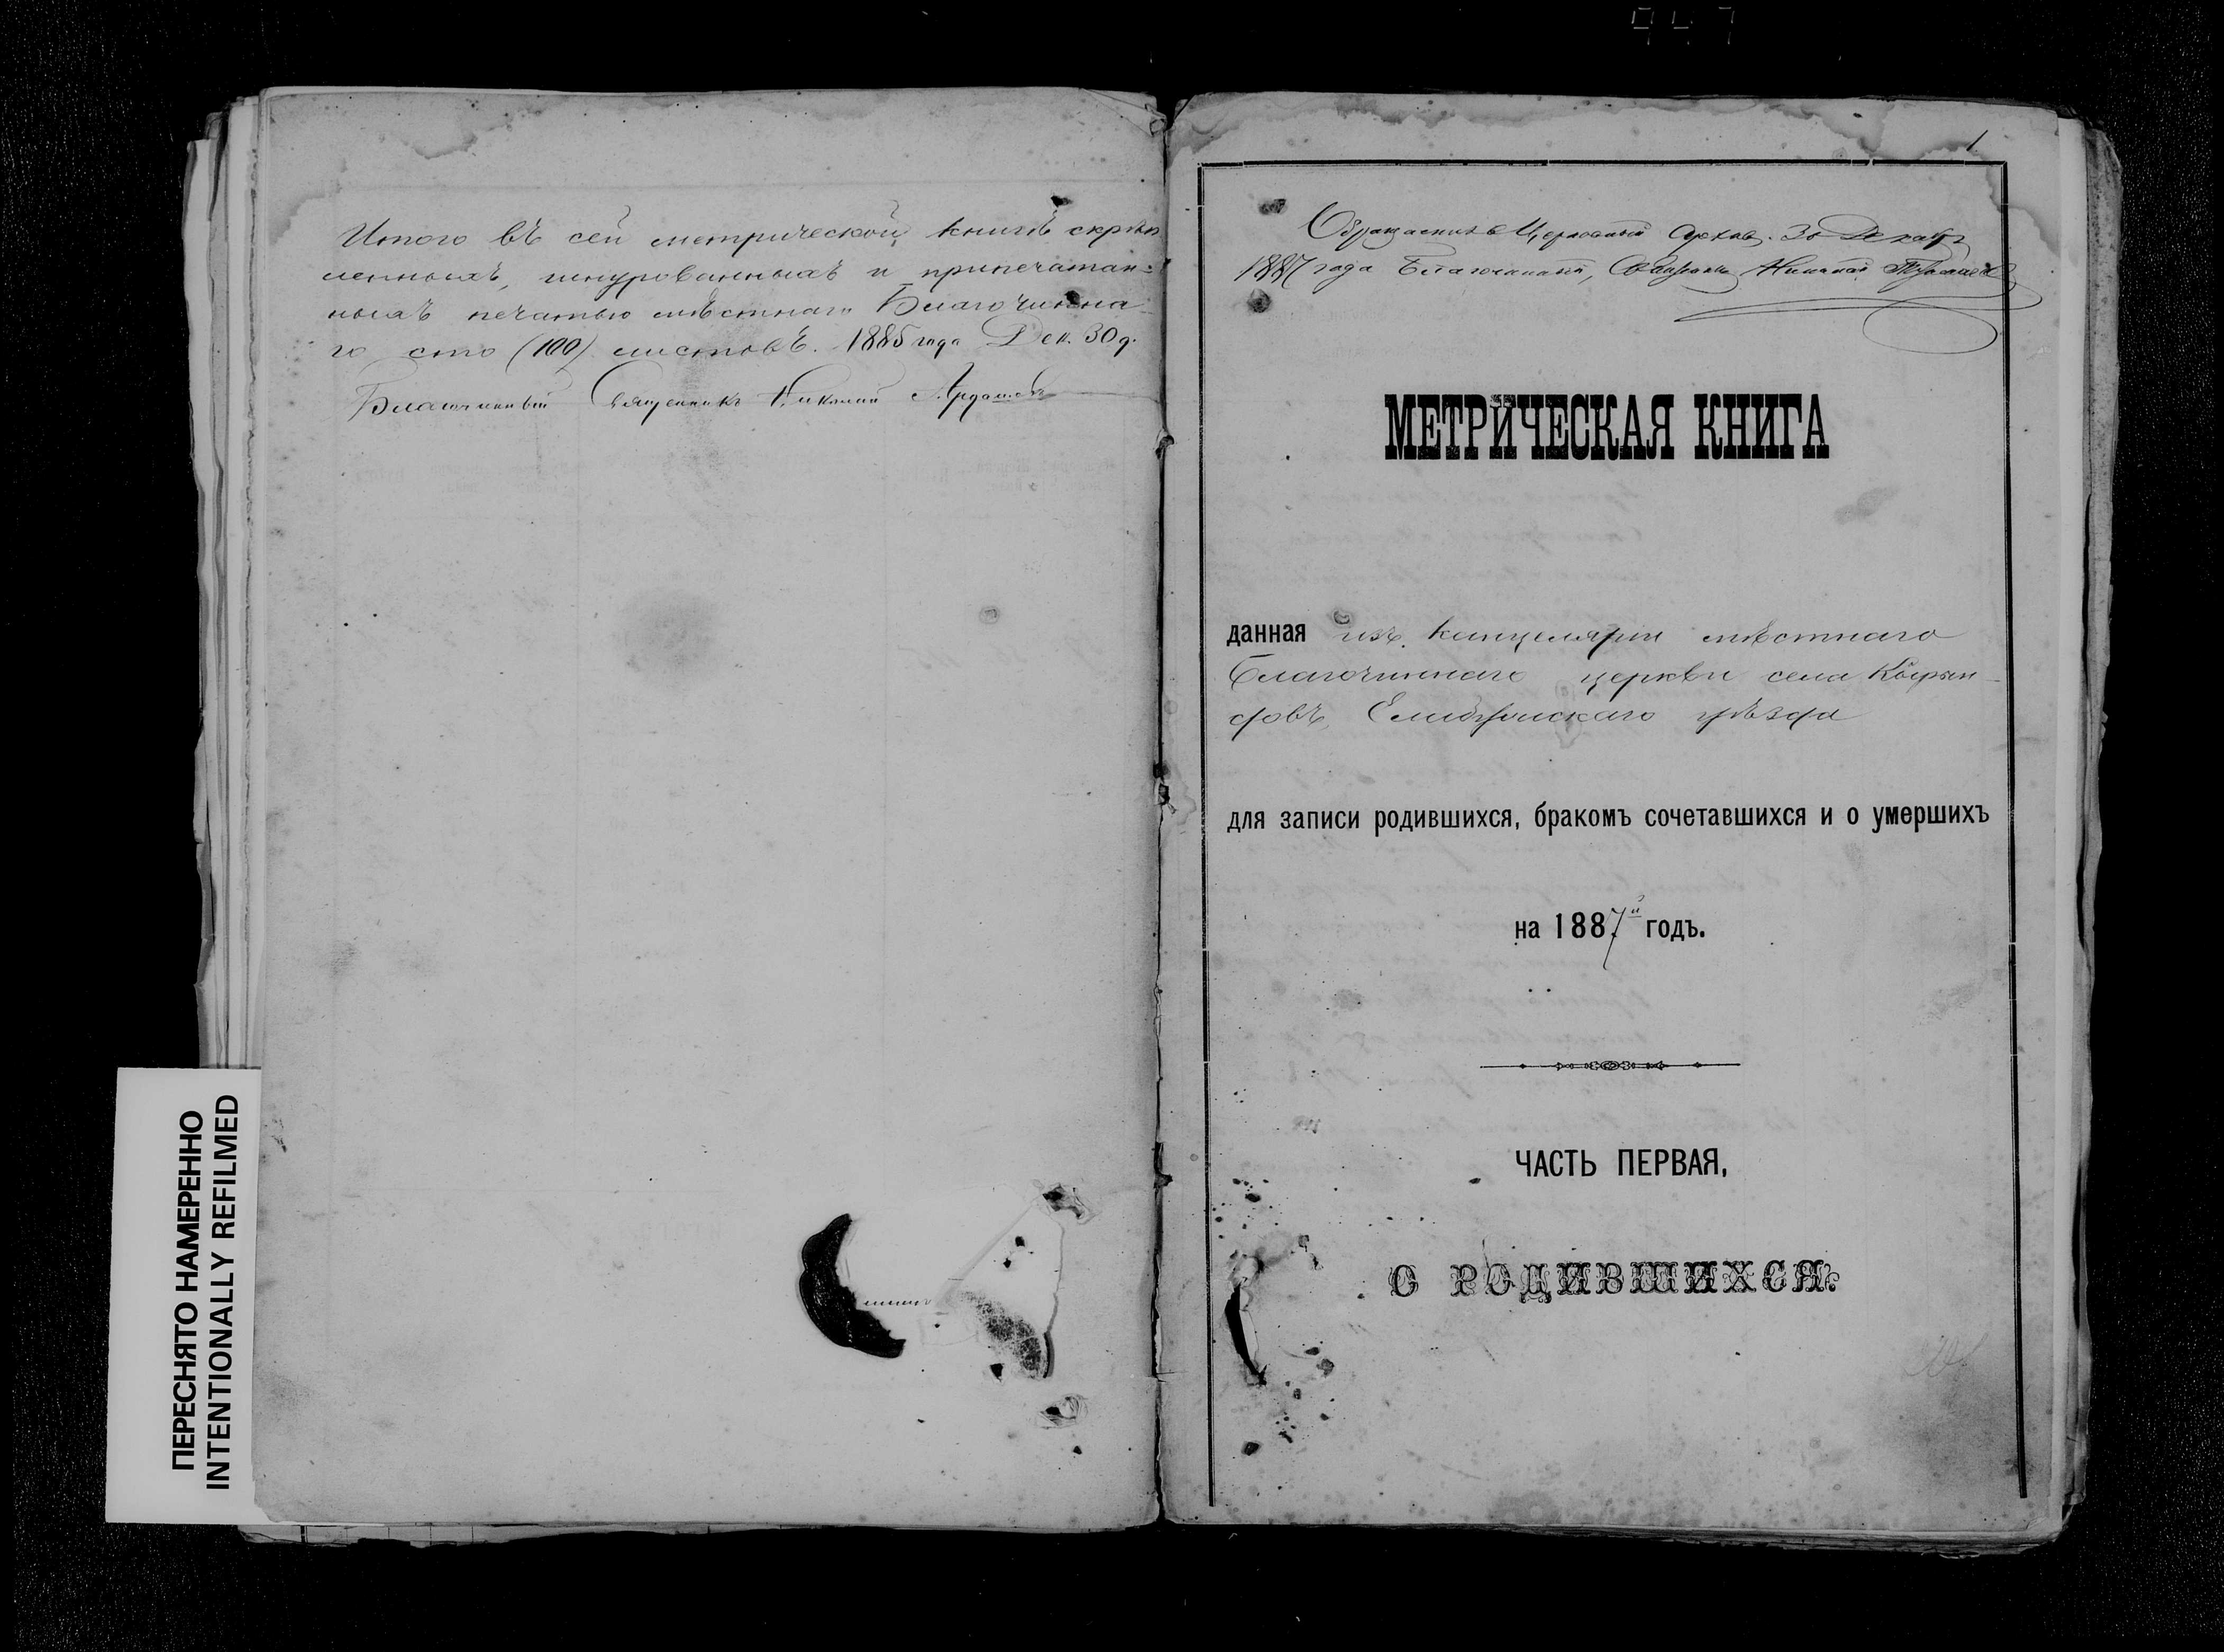 Итого въ сей метрической книгѣ скрѣп
ленныхъ, шнурованныхъ и припечатан=
ныхъ печатью мѣстнаго Благочинна-
го сто (100) листовъ. 1885 года Дек. 30 д.
Благочинный Священникъ Николай
ПЕРЕСНЯТО НАМЕРЕННО
INTENTIONALLY REFILMED
1
Церковный Архивъ. 30 Декабр
1887 года Благочинный, Николай
МЕТРИЧЕСКАЯ КНИГА
данная изъ канцеляріи мѣстнаго
Благочиннаго церкви села
Елабужскаго уѣзда
для записи родившихся, бракомъ сочетавшихся и о умершихъ
на 1887й годъ.
ЧАСТЬ ПЕРВАЯ,
О РОДИВШИХСЯ.